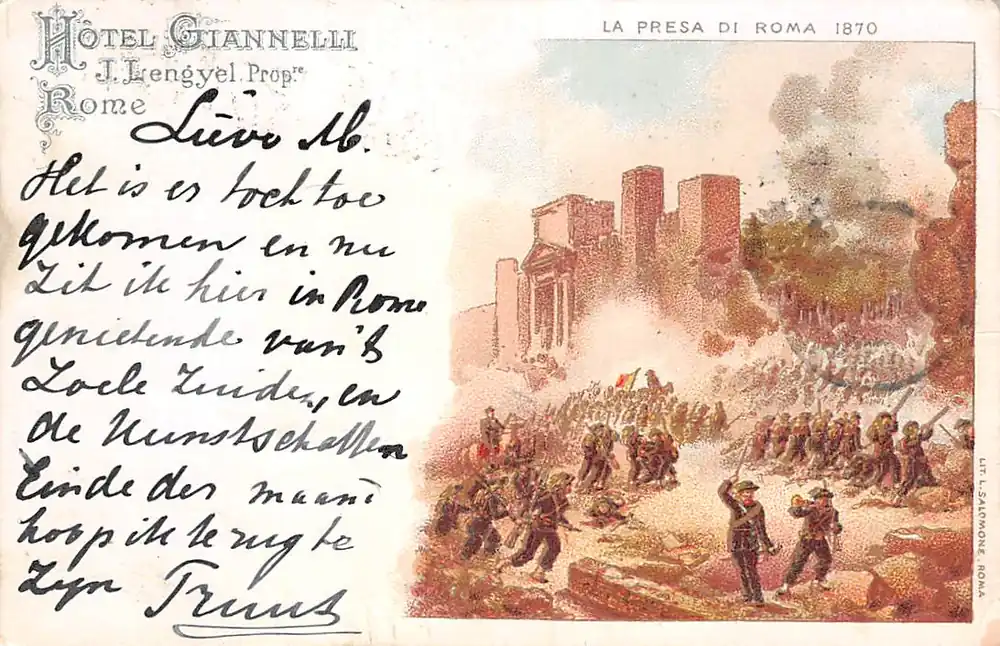 HÔTEL GIANNELLI
J. Lengyel. Propre
Rome
LA PRESA DI ROMA 1870
Lieve M.
Het is er toch toe
gekomen en nu
Zit ik hier in Rome
genietende van't
Zoele Zuiden, en
de Kunstschatten
Einde der maand
hoop ik terug te
Zyn Truus
LIT. L. SALOMONE. ROMA